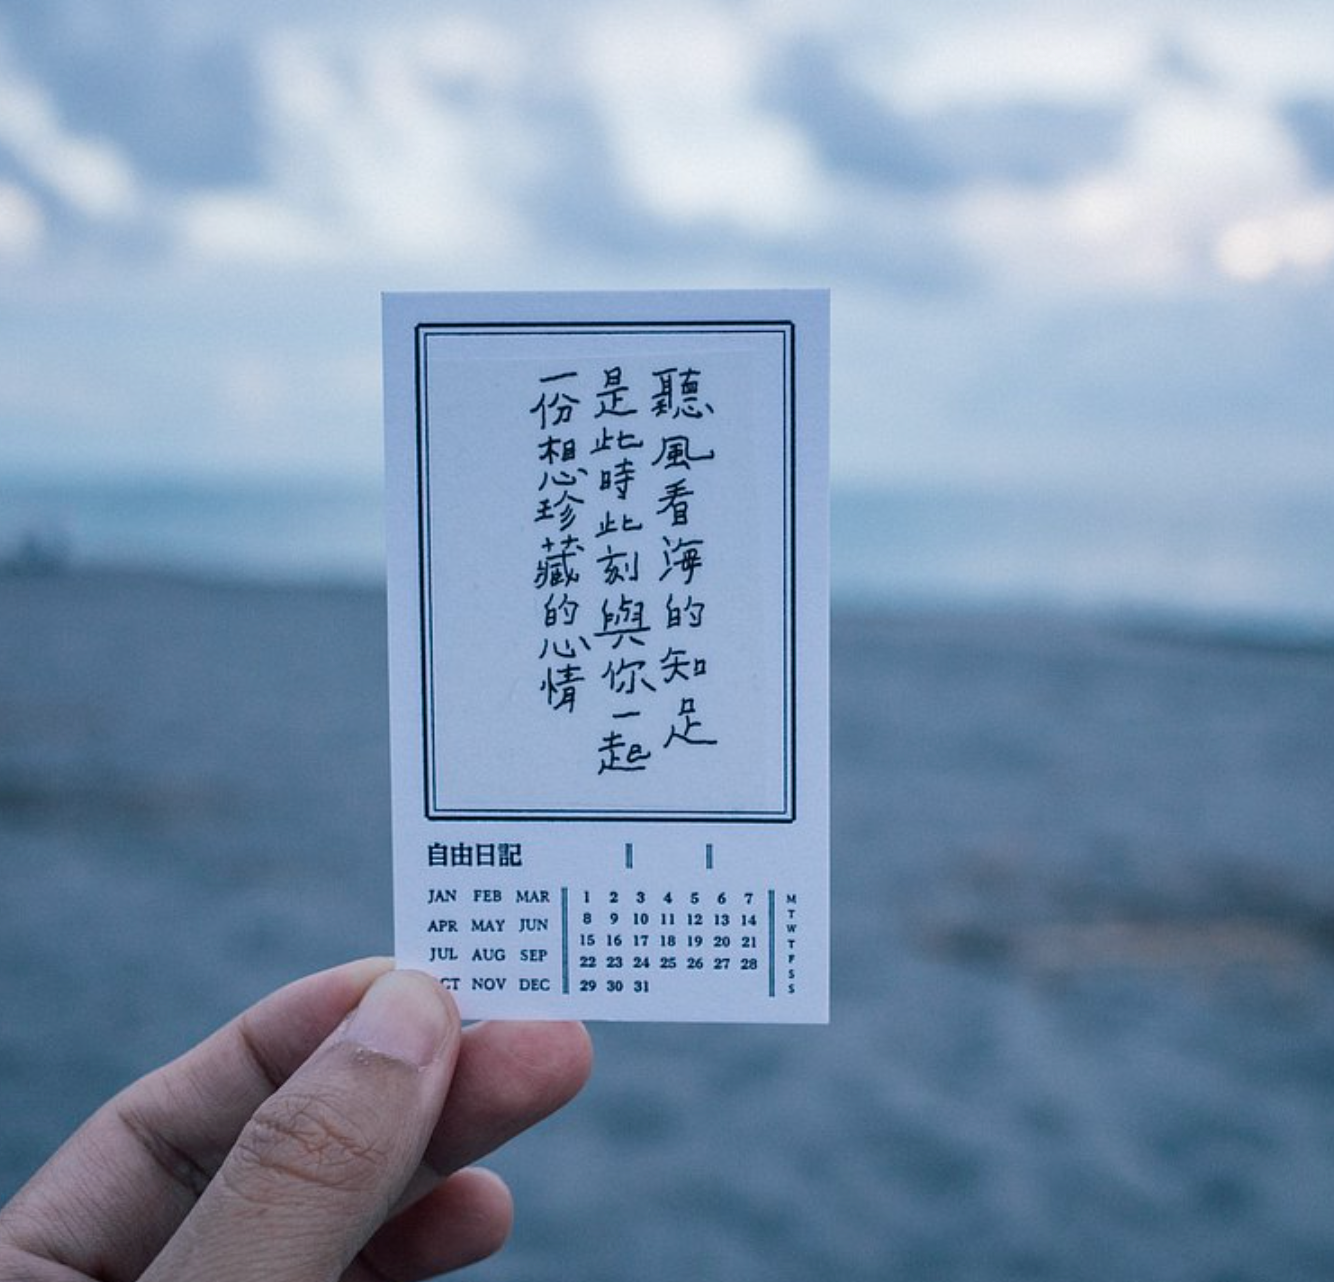 聽風看海的知足
是此時此刻與你一起
一份想珍藏的心情
自由日記
JAN FEB MAR
APR MAY JUN
JUL AUG SEP
CT NOV DEC
1 2 3 4 5 6 7
8 9 10 11 12 13 14
15 16 17 18 19 20 21
22 23 24 25 26 27 28
29 30 31
M
T
W
T
F
S
S